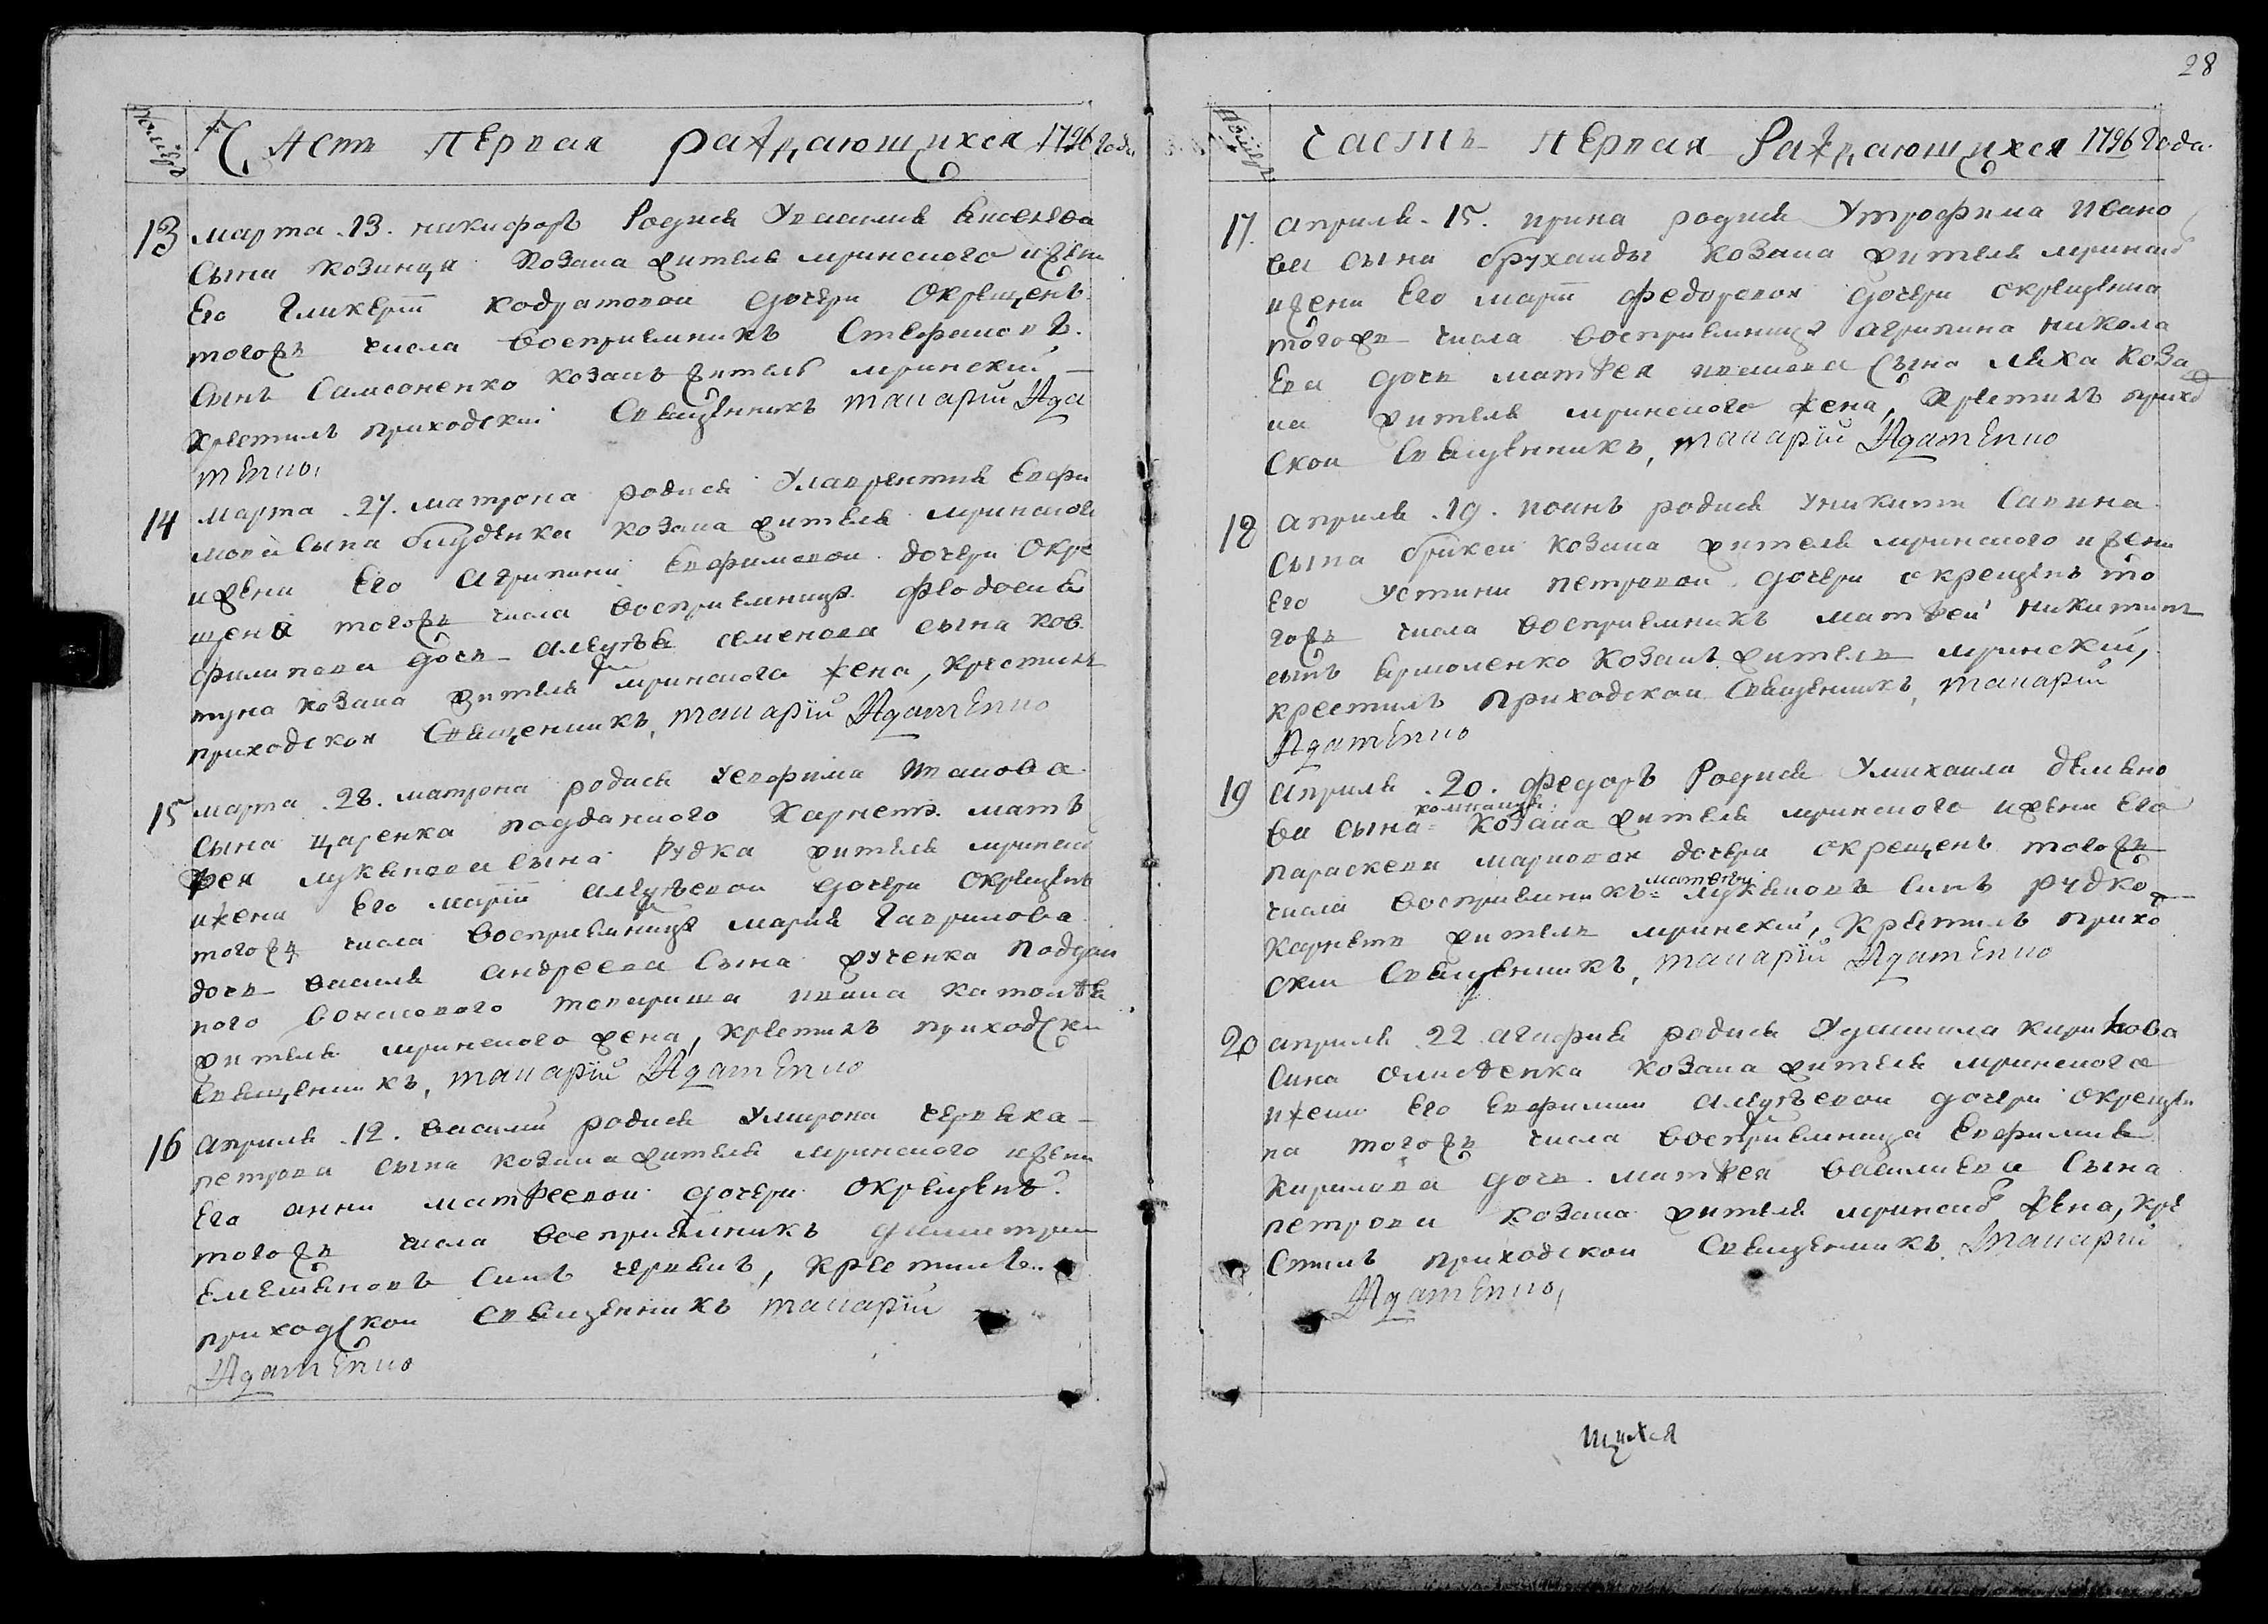 28
Номеръ
Часть первая раждающихся 1796 года
13 марта 13. никифоръ родися У василия
сына козинця козака жителя мринского ижени
Его Гликерїї кодратовои дочери окрещенъ
тогожъ числа восприемникъ Стефановъ
сынъ Самсоненко козакъ житель мринский
крестилъ приходский Священникъ макарїй Ада
менко,
14 марта 27. матрона родися У лаврентия Евфи
мова сына блуденка козака жителя мринского
ижени Его Агрипини Евфимовои дочери Окре
щена тогожъ числа восприемница феодосия
филипова дочь алеѯѣя семенова сына ков
туна козака жителя мринского жена, крестилъ
приходскои Священникъ, макарїй Адаменко
15 марта 28. матрона родися У евфима иванова
сына царенка подданного Карнетъ. мать
фея лукянова сына рудка жителя мринско
ижени Его марїї алеѯѣевои дочери окрещена
тогожъ числа восприемница мария Гаврилова
дочь василя андреева сына рученка поддан
ного бонжового товариша ивана
жителя мринского жена, крестилъ приходски
Священникъ, макарїй Адаменко
16 априля 12. василий родися У мирона червяка
петрова сына козака жителя мринского ижени
Его анни матфеевои дочери окрещенъ
тогожъ числа восприемникъ димитрии
Емельяновъ синъ червякъ, крестилъ
приходскои священникъ макарїй
Адаменко
Номеръ
часть первая раждающихся 1796 года
17. априля 15. ирина родися У трофима ивано
ва сына бруханды козака жителя мринско
ижени Его марїї федоровои дочери окрещенна
тогожъ числа восприемница агрипина никола
Ева дочь матфея иванова сына ляха коза
ка жителя мринского жена, крестилъ приход
скои священникъ, макарїй Адаменко
18 априля 19. иоанъ родися У никити савина
сына брикси козака жителя мринского ижени
Его устини петровои дочери окрещенъ то
гожъ числа восприемникъ матфеи никитинъ
сынъ Ермоленко козакъ житель мринский,
крестилъ приходскои священникъ, макарїй
Адаменко
19 априля 20. федоръ родися У михаила демяно
ва сына козака жителя мринского ижени Его
параскеви марковои дочери окрещенъ тогожъ
матфей
числа восприемникъ лукяновъ синъ рудко
карнетъ житель мринский, крестилъ прихо
ский священникъ, макарїй Адаменко
20 априля 22 агафия родися У данила кирилова
сина козака жителя мринского
ижени Его Евфимии алеѯѣевои дочери окреще
на тогожъ числа восприемница Евфимия
кирилова дочь матфея василиева сына
петрова козака жителя мринско жена, кре
стилъ приходскои священникъ макарїй
Адаменко,
щихся